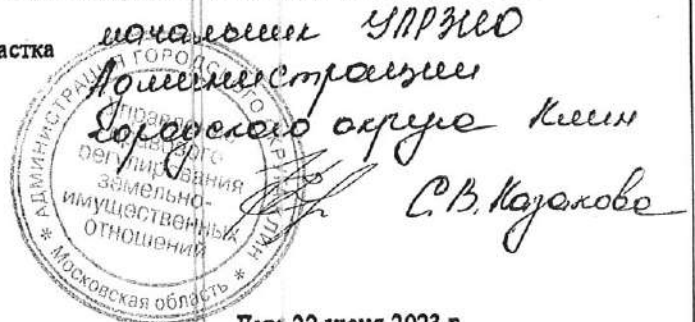 астка
начальник УПРЗИО
Администрации
городского округа Клин
С.В. Казакова
АДМИНИСТРАЦИЯ ГОРОДСКОГО ОКРУГА КЛИН
* Московская область *
Управление
правового
регулирования
земельно-
имущественных
отношений
2023 г.